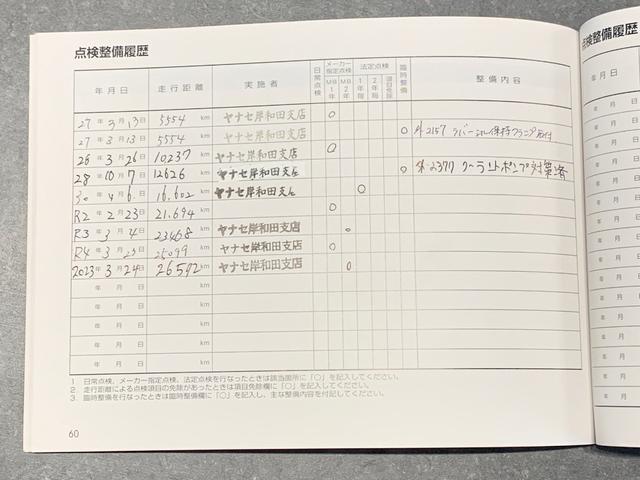 点検整備履歴
年月日 走行距離 実施者 日常点検 メーカー指定点検 MB1年 MB2年 法定点検 1年 2年 項目免除 臨時整備 整備内容
27年3月13日 5554km ヤナセ岸和田支店 ○
27年3月13日 5554km ヤナセ岸和田支店 ○ #2157 ラバーシール保持クランプ取付
28年3月26日 10237km ヤナセ岸和田支店 ○
28年10月7日 12626km ヤナセ岸和田支店 ○ #2377 クーラントポンプ対策済
30年4月6日 16,602km ヤナセ岸和田支店 ○
R2年2月23日 21,694km ○
R3年3月4日 23468km ヤナセ岸和田支店 ○
R4年3月23日 25099km ヤナセ岸和田支店 ○
2023年3月24日 26592km ヤナセ岸和田支店 ○
年月日 km
年月日 km
年月日 km
年月日 km
年月日 km
1 日常点検、メーカー指定点検、法定点検を行なったときは該当箇所に「○」を記入してください。
2．走行距離による点検項目の免除があったときは項目免除欄に「○」を記入してください。
3．臨時整備を行なったときは臨時整備欄に「○」を記入し、主な整備内容を付記してください。
60
点検整備履歴
年月日
年月日
年月日
年月日
年月日
年月日
年月日
年月日
年月日
年月日
年月日
年月日
年月日
年月日